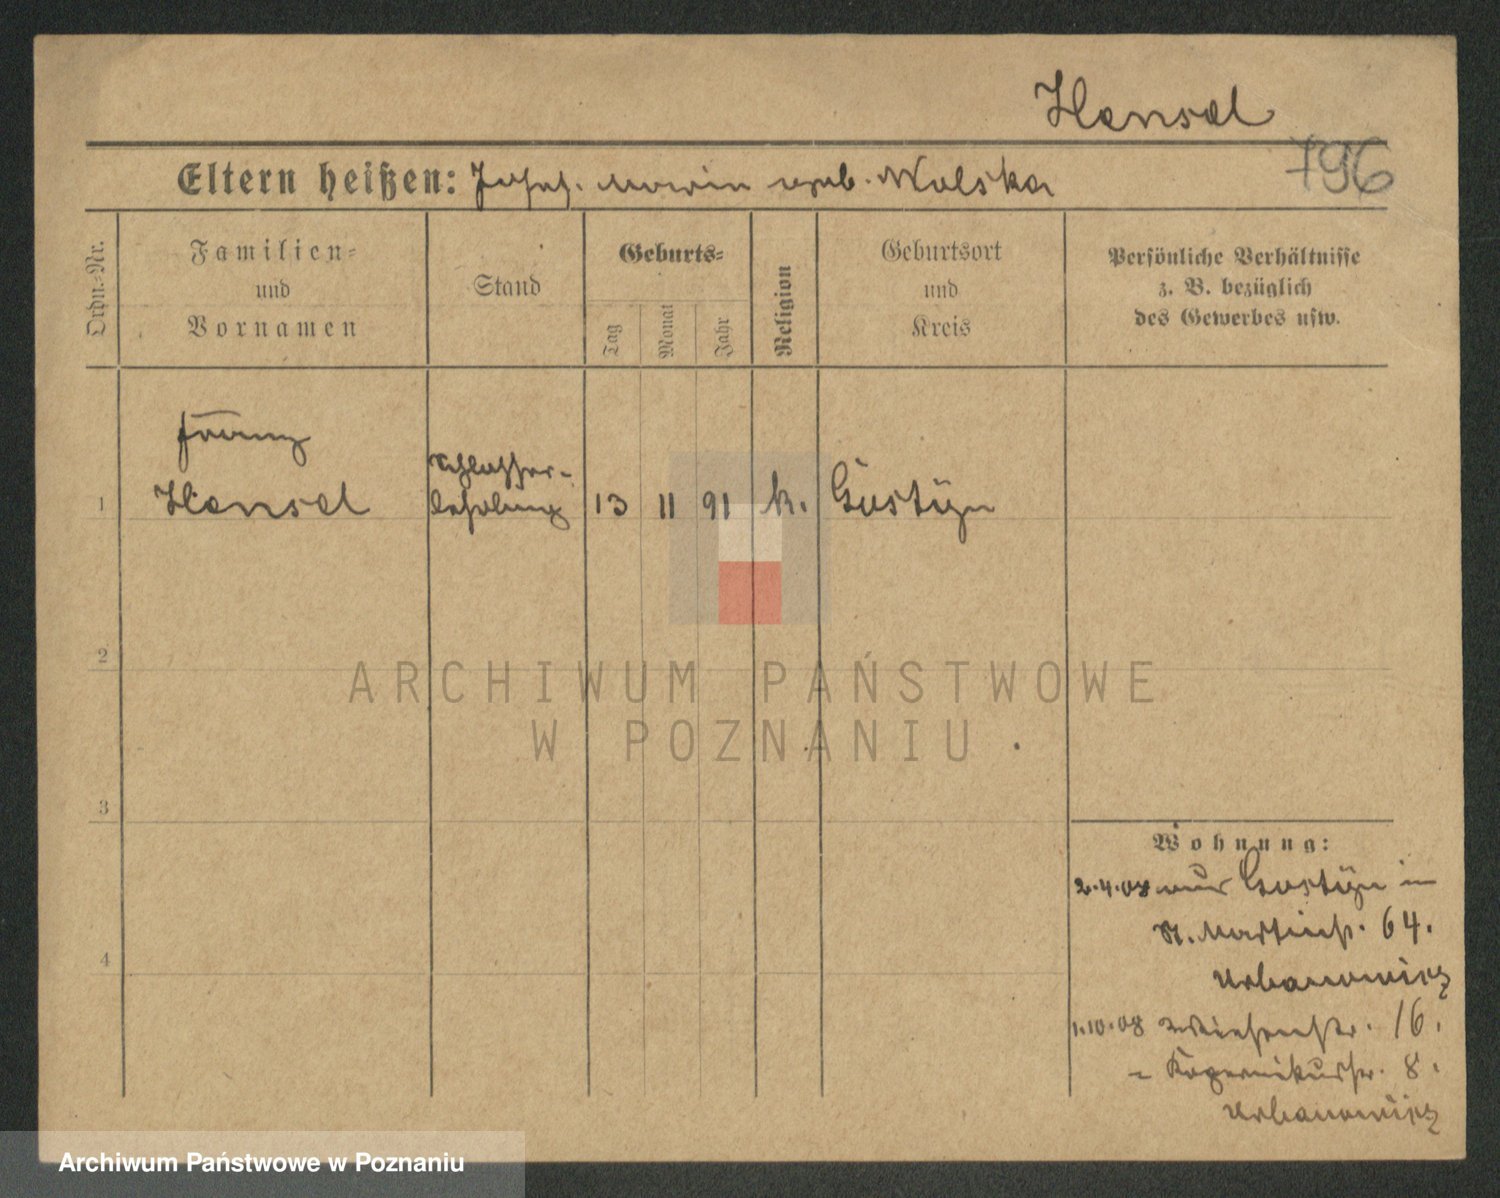 Hensel
796
Eltern heißen: Josef. Maria geb. Wolska
Ordn.-Nr.
Familien-
und
Vornamen
Stand
Geburts-
Tag
Monat
Jahr
Religion
Geburtsort
und
Kreis
Persönliche Verhältnisse
z. B. bezüglich
des Gewerbes usw.
Franz
1 Hensel
Schlosser-
lehrling
13 11 91 k. Gostyn
2
ARCHIWUM PAŃSTWOWE
W POZNANIU
3
Wohnung:
2.4.08 aus Gostyn in
St. Martinstr. 64.
Urbanowicz
4
1.10.08 Wiesenstr. 16.
- Kopernikusstr. 8.
Urbanowicz
Archiwum Państwowe w Poznaniu